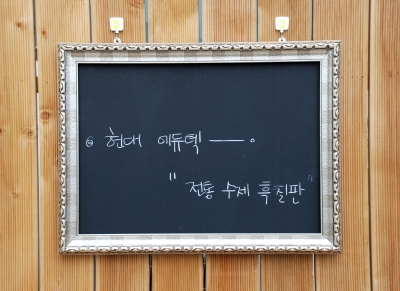 ◎ 현대 에듀텍 ——.
" 전통 수제 흑칠판 "